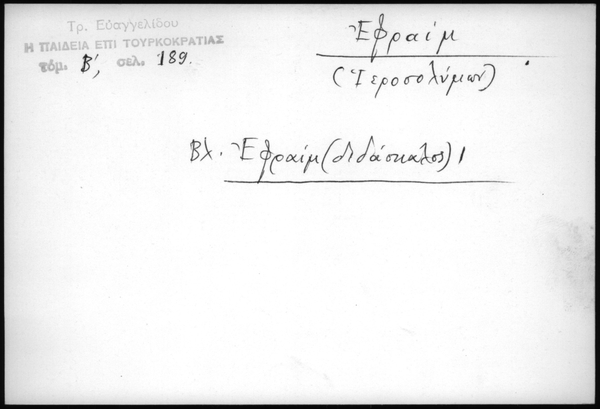 Τρ. Εὐαγγελίδου
Η ΠΑΙΔΕΙΑ ΕΠΙ ΤΟΥΡΚΟΚΡΑΤΙΑΣ
τόμ. Β', σελ. 189.
Ἐφραίμ
(Ἱεροσολύμων)
Βλ. Ἐφραίμ (διδάσκαλος) 1